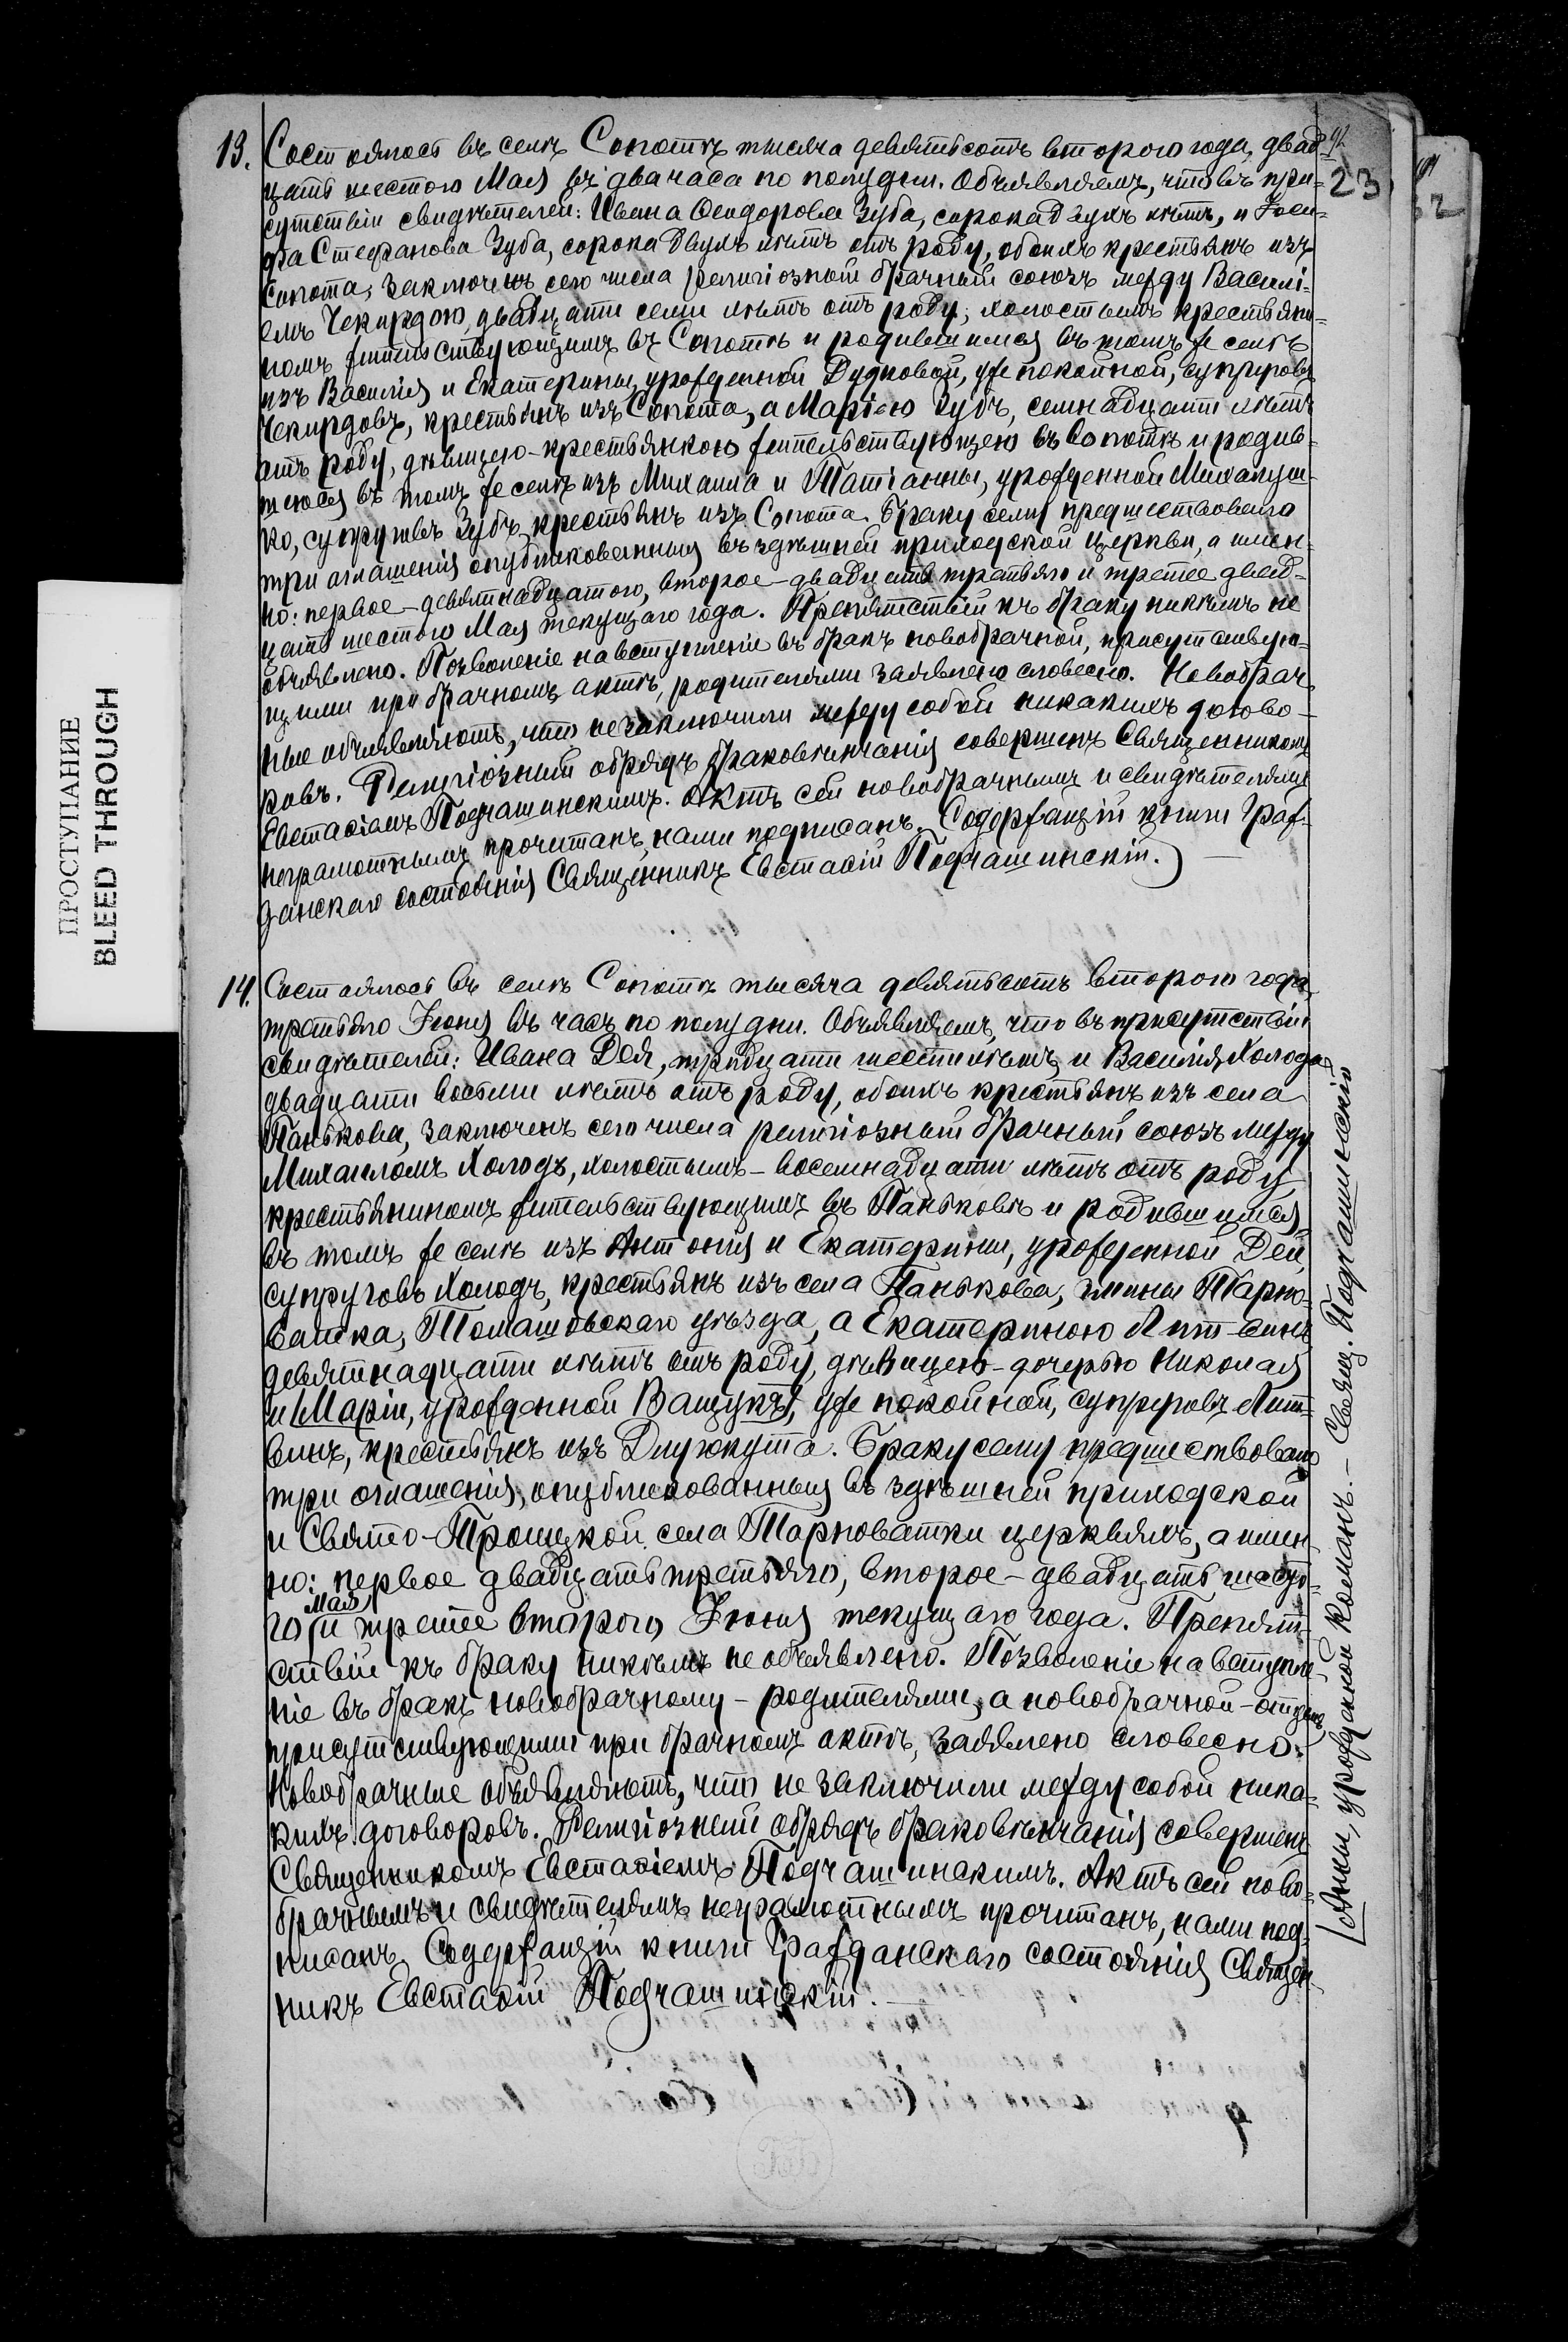 ПРОСТУПАНИЕ
BLEED THROUGH
23
13. Состоялось въ селѣ Сопотѣ тысяча девятьсотъ второго года, двад-
цать шестого Мая въ два часа по полудни. Объявляемъ, что въ при-
сутствіи свидѣтелей: Ивана Ѳеодорова Зуба, сорока двухъ лѣтъ, и Іоси-
фа Стефанова Зуба, сорока двухъ лѣтъ отъ роду, обоихъ крестьянъ изъ
Сопота, заключенъ сего числа религіозный брачный союзъ между Василі-
емъ Чекирдою, двадцати семи лѣтъ отъ роду, холостымъ крестьяни-
номъ жительствующимъ въ Сопотѣ и родившимся въ томъ же селѣ
изъ Василія и Екатерины, урожденной Дудковой, уже покойной, супруговъ
Чекирдовъ, крестьянъ изъ Сопота, а Маріею Зубъ, семнадцати лѣтъ
отъ роду, дѣвицею-крестьянкою жительствующею въ Сопотѣ и родив-
шеюся въ томъ же селѣ изъ Михаила и Татіанны, урожденной Михалуш-
ко, супруговъ Зубъ, крестьянъ изъ Сопота. Браку сему предшествовало
три оглашенія опубликованныя въ здѣшней приходской церкви, а имен-
но: первое - девятнадцатого, второе - двадцать третьяго и третее двад-
цать шестого Мая текущаго года. Препятствій къ браку никѣмъ не
объявлено. Позволеніе на вступленіе въ бракъ новобрачной, присутствую-
щими при брачномъ актѣ, родителями заявлено словесно. Новобрач-
ные объявляютъ, что не заключили между собой никакихъ догово-
ровъ. Религіозный обрядъ браковѣнчанія совершенъ Священникомъ
Евстаѳіемъ Подчашинскимъ. Актъ сей новобрачнымъ и свидѣтелямъ
неграмотнымъ прочитанъ, нами подписанъ. Содержащій книги Граж-
данскаго состоянія Священникъ Евстаѳій Подчашинскій.
14. Состоялось въ селѣ Сопотѣ тысяча девятьсотъ второго года,
третьяго Іюня въ часъ по полудни. Объявляемъ, что въ присутствіи
свидѣтелей: Ивана Дея, тридцати шести лѣтъ, и Василія Холода
двадцати восьми лѣтъ отъ роду, обоихъ крестьянъ изъ села
Панькова, заключенъ сего числа религіозный брачный союзъ между
Михаиломъ Холодъ, холостымъ - восемнадцати лѣтъ отъ роду,
крестьяниномъ жительствующимъ въ Паньковѣ и родившимся
въ томъ же селѣ изъ Антонія и Екатерины, урожденной Дей,
супруговъ Холодъ, крестьянъ изъ села Панькова, гмины Тарно-
ватка, Томашовскаго уѣзда, а Екатериною Литвинъ,
девятнадцати лѣтъ отъ роду, дѣвицею - дочерью Николая
и Маріи, урожденной Ващукъ, уже покойной, супруговъ Лит-
винъ, крестьянъ изъ Длугокута. Браку сему предшествовало
три оглашенія, опубликованныя въ здѣшней приходской
и Свято-Троицкой села Тарноватки церквяхъ, а имен-
но: первое двадцать третьяго, второе - двадцать шесто-
Мая
го и третее второго Іюня текущаго года. Препят-
ствій къ браку никѣмъ не объявлено. Позволеніе на вступле-
ніе въ бракъ новобрачному - родителями, а новобрачной - отцемъ,
присутствующими при брачномъ актѣ, заявлено словесно.
Новобрачные объявляютъ, что не заключили между собой ника-
кихъ договоровъ. Религіозный обрядъ браковѣнчанія совершенъ
Священникомъ Евстаѳіемъ Подчашинскимъ. Актъ сей ново-
брачнымъ и свидѣтелямъ неграмотнымъ прочитанъ, нами под-
писанъ. Содержащій книги Гражданскаго состоянія Священ-
никъ Евстаѳій Подчашинскій.
Анны, урожденной Команъ. - Свящ. Подчашинскій